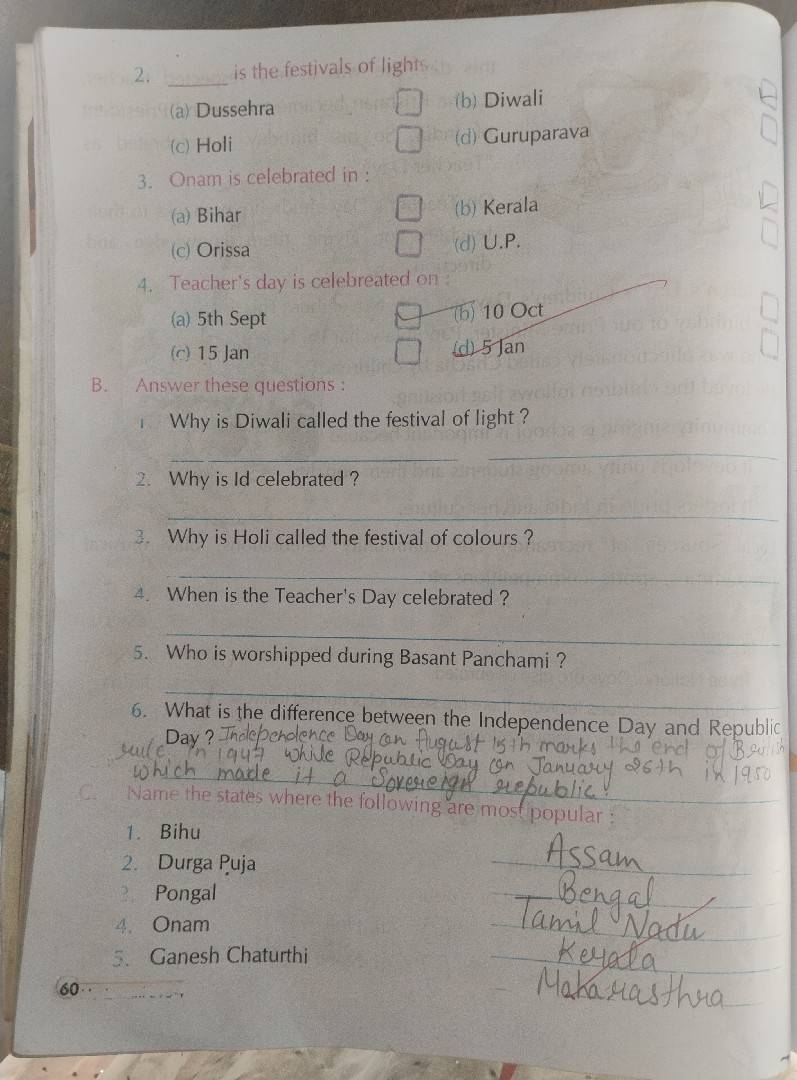 2. ______ is the festivals of lights
(a) Dussehra (b) Diwali
(c) Holi (d) Guruparava
3. Onam is celebrated in :
(a) Bihar (b) Kerala
(c) Orissa (d) U.P.
4. Teacher's day is celebreated on :
(a) 5th Sept (b) 10 Oct
(c) 15 Jan (d) 5 Jan
B. Answer these questions :
1 Why is Diwali called the festival of light ?
2. Why is Id celebrated ?
3. Why is Holi called the festival of colours ?
4. When is the Teacher's Day celebrated ?
5. Who is worshipped during Basant Panchami ?
6. What is the difference between the Independence Day and Republic
Day ? Independence Day on August 15th marks the end of British
rule in 1947 while Republic Day on January 26th in 1950
which made it a Sovereign republic.
C. Name the states where the following are most popular :
1. Bihu Assam
2. Durga Puja Bengal
3. Pongal Tamil Nadu
4. Onam Kerala
5. Ganesh Chaturthi Maharasthra
60